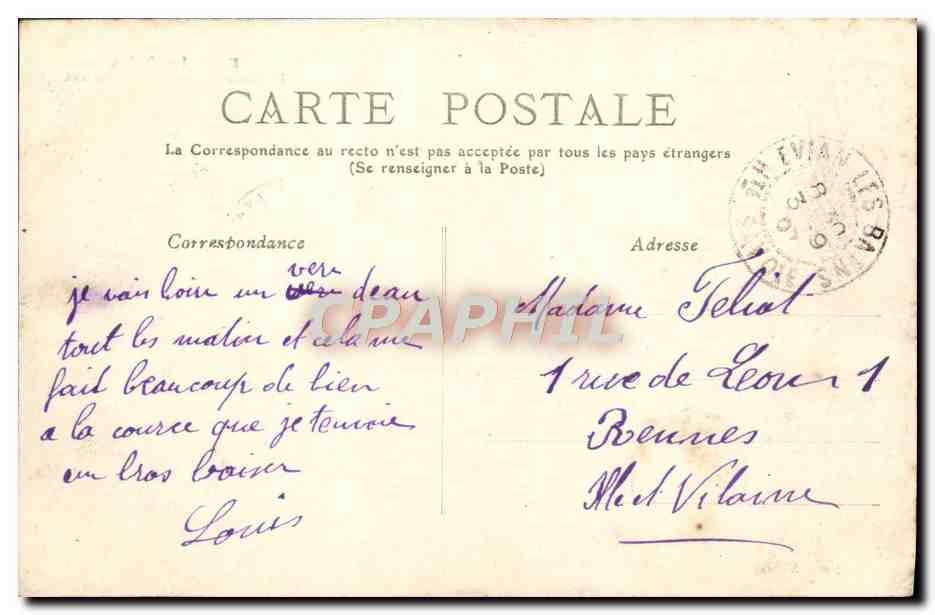 CARTE POSTALE
La Correspondance au recto n'est pas acceptée par tous les pays étrangers
(Se renseigner à la Poste)
EVIAN LES BAINS
Correspondance
Adresse
je vais boire un vere deau
tout les matin et cela me
fait beaucoup de bien
a la source que je tenvoie
un bros baiser
Louis
Madame Feliot
1 rue de Leon 1
Rennes
Ille et Vilaine
CPAPHIL